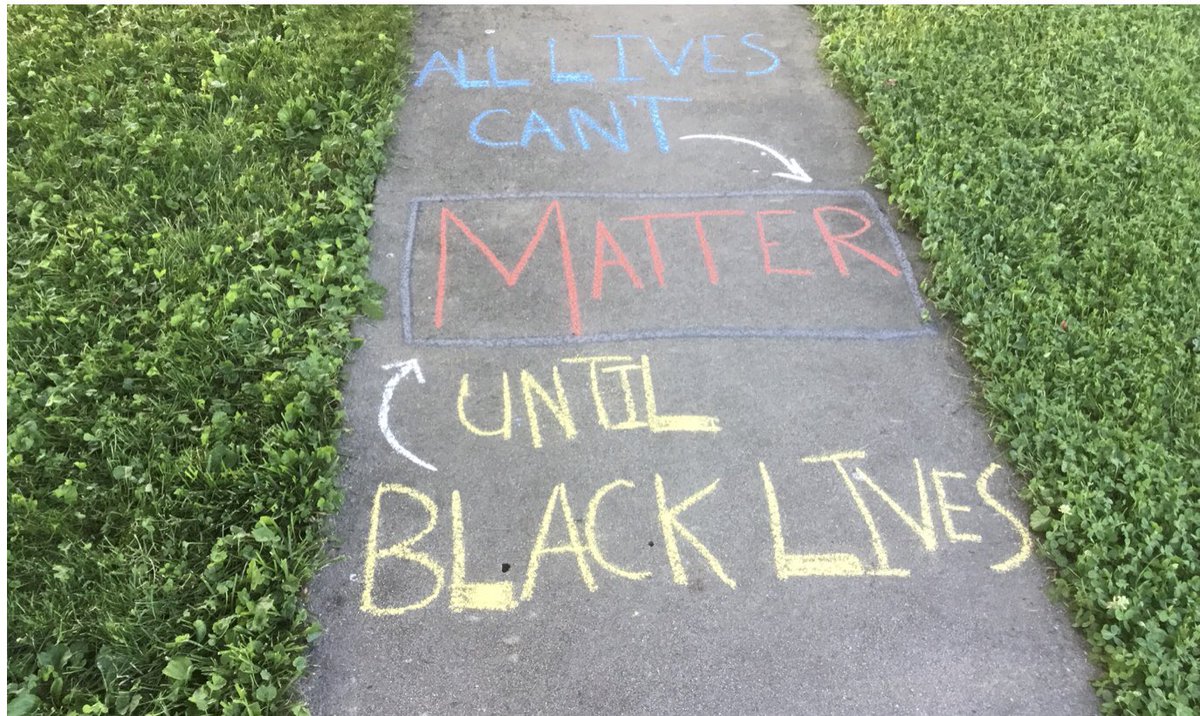 ALL LIVES
CAN'T
MATTER
UNTIL
BLACK LIVES